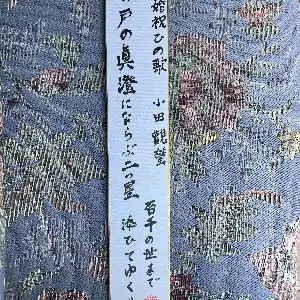 婚祝ひの歌 小田觀螢
戸の眞澄にならぶ二つ星 添ひてゆく
百千の世まで